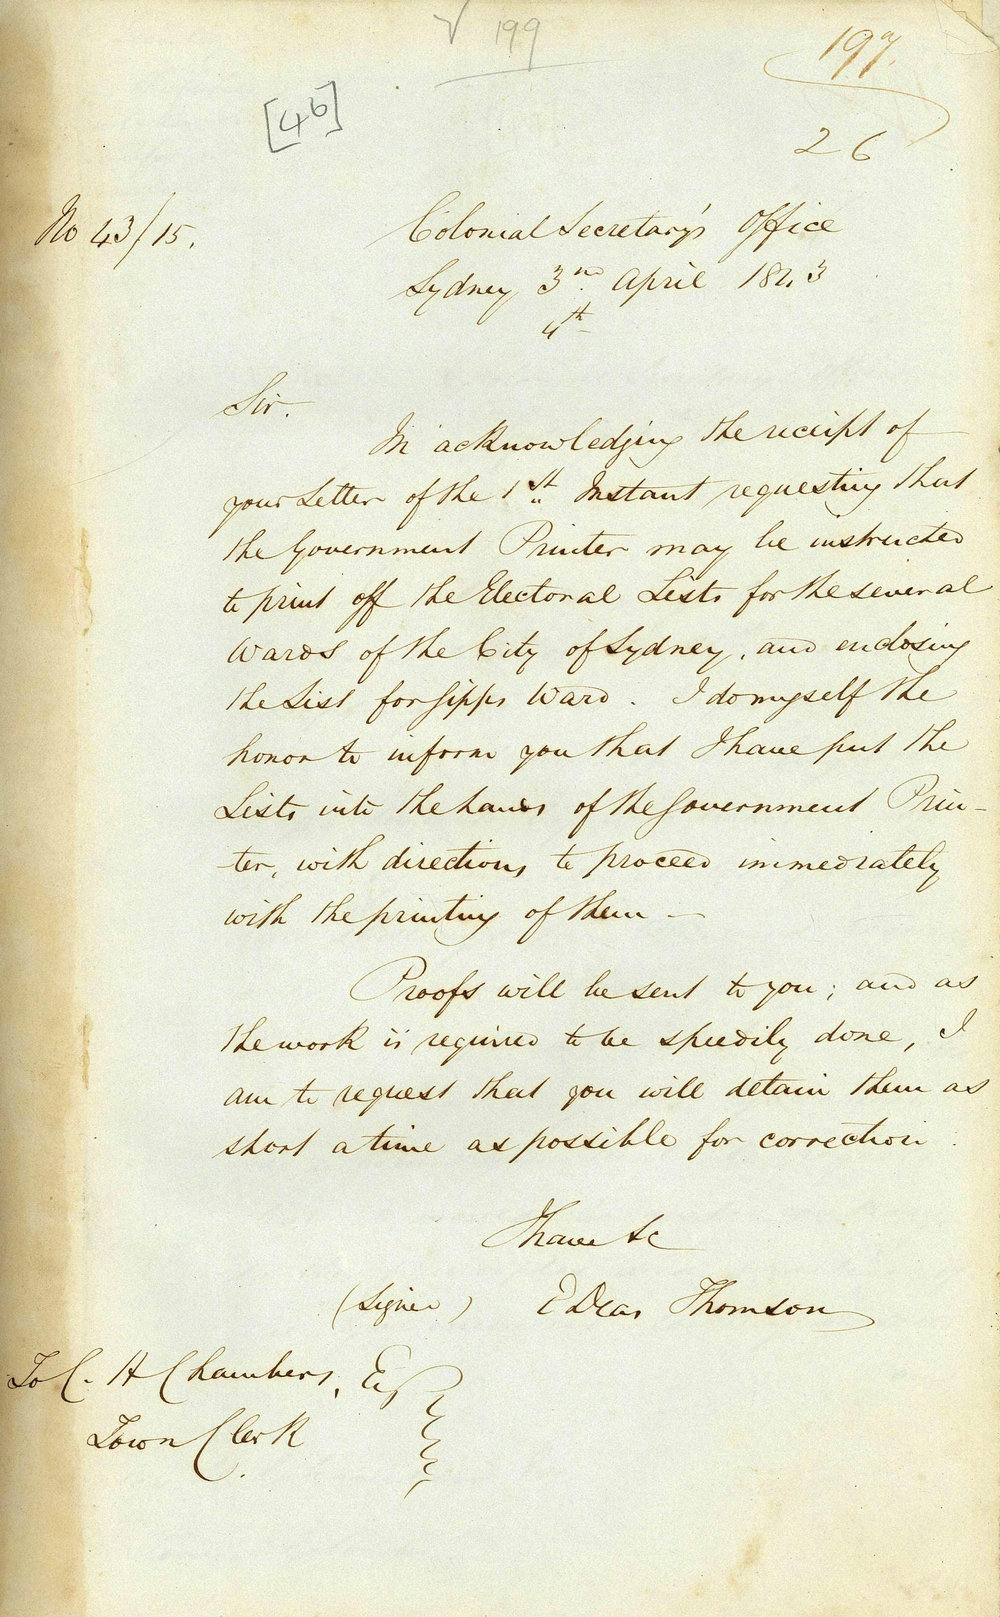 √ 199
197.
[46]
26
No 43/15.
Colonial Secretary's Office
Sydney 3rd. April 1843
4th
Sir.
In acknowledging the receipt of
your Letter of the 1st Instant requesting that
the Government Printer may be instructed
to print off the Electoral Lists for the several
Wards of the City of Sydney, and enclosing
the List for Gipps Ward. I do myself the
honor to inform you that I have put the
Lists into the hands of the Government Prin-
ter, with directions to proceed immediately
with the printing of them —
Proofs will be sent to you; and as
the work is required to be speedily done, I
am to request that you will detain them as
short a time as possible for correction.
I have &c
(Signed) E Deas Thomson
To C. H Chambers, Esq
Town Clerk.